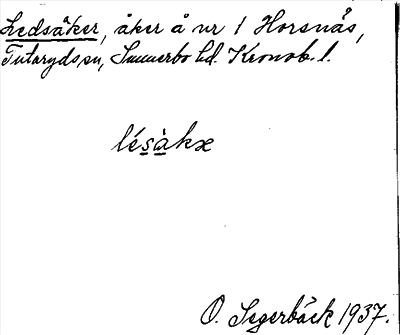 Ledsåker, åker å nr 1 Horsnäs,
Tutaryds sn, Sunnerbo hd. Kronob. l.
lésàkæ
O. Segerbäck 1937.